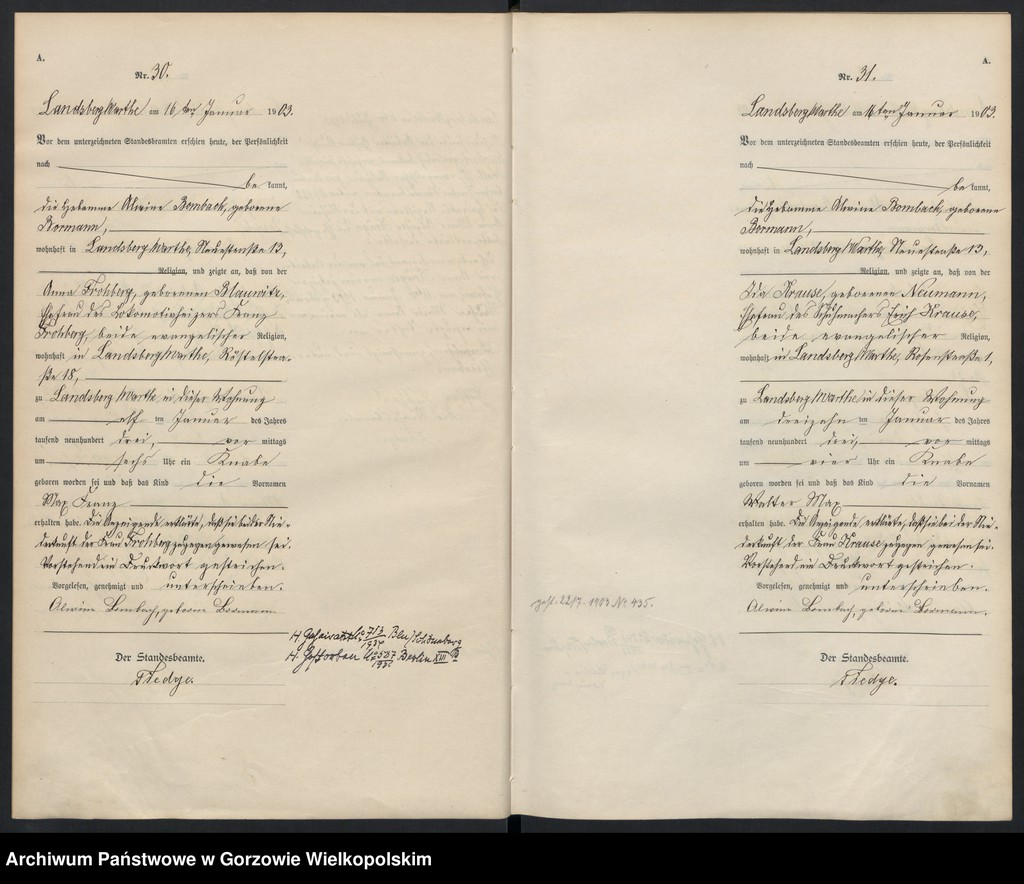 A.
Nr. 30.
Landsberg Warthe am 16 ten Januar 1903.
Vor dem unterzeichneten Standesbeamten erschien heute, der Persönlichkeit
nach
be kannt,
die Hebamme Alwine Bombach, geborene
Bormann,
wohnhaft in Landsberg Warthe, Neuestraße 13,
Religion, und zeigte an, daß von der
Anna Frohberg, geborenen Blauwitz,
Ehefrau des Lokomotivheizers Franz
Frohberg, beide evangelischer Religion,
wohnhaft in Landsberg Warthe, Röstelstra-
ße 18,
zu Landsberg Warthe in dieser Wohnung
am elf ten Januar des Jahres
tausend neunhundert drei, vor mittags
um sechs Uhr ein Knabe
geboren worden sei und daß das Kind die Vornamen
Max Franz
erhalten habe. Die Anzeigende erklärte, daß sie bei der Nie-
derkunft der Frau Frohberg zugegen gewesen sei.
Vorstehend ein Druckwort gestrichen.
Vorgelesen, genehmigt und unterschrieben.
Alwine Bombach, geborene Bormann
Der Standesbeamte.
H. Geheiratet: No 713/1934 Bln/Schöneberg
H. Gestorben No 587 Berlin XIII
A.
Nr. 31.
Landsberg Warthe am 16 ten Januar 1903.
Vor dem unterzeichneten Standesbeamten erschien heute, der Persönlichkeit
nach
be kannt,
die Hebamme Alwine Bombach, geborene
Bormann,
wohnhaft in Landsberg Warthe, Neuestraße 13,
Religion, und zeigte an, daß von der
Ida Krause, geborenen Neumann,
Ehefrau des Schuhmachers Erich Krause,
beide evangelischer Religion,
wohnhaft in Landsberg Warthe, Rosenstraße 1,
zu Landsberg Warthe in dieser Wohnung
am dreizehn ten Januar des Jahres
tausend neunhundert drei, vor mittags
um vier Uhr ein Knabe
geboren worden sei und daß das Kind die Vornamen
Walter Max
erhalten habe. Die Anzeigende erklärte, daß sie bei der Nie-
derkunft der Frau Krause zugegen gewesen sei.
Vorstehend ein Druckwort gestrichen.
Vorgelesen, genehmigt und unterschrieben.
Alwine Bombach, geborene Bormann.
gest. 22/7. 1903 No 435.
Der Standesbeamte.
Archiwum Państwowe w Gorzowie Wielkopolskim